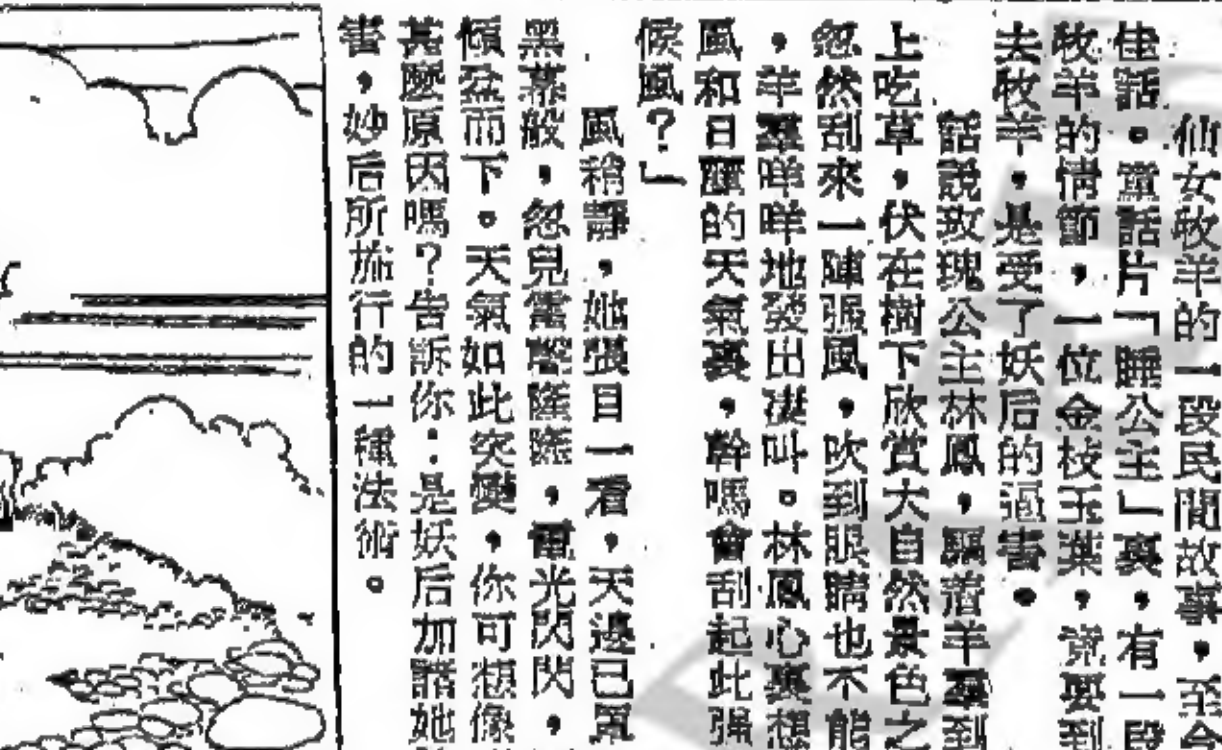 仙女牧羊的一段民間故事，至今
佳話。童話片「睡公主」裏，有一段
牧羊的情節，一位金枝玉葉，竟要到
去牧羊，是受了妖后的逼害。
話說玫瑰公主林鳳，驅着羊羣到
上吃草，伏在樹下欣賞大自然景色之
忽然刮來一陣强風，吹到眼睛也不能
，羊羣咩咩地發出淒叫。林鳳心裏想
風和日麗的天氣裏，幹嗎會刮起此强
候風？」
風稍靜，她張目一看，天邊已罩
黑幕般，忽兒雷聲隆隆，電光閃閃，
傾盆而下。天氣如此突變，你可想像
甚麼原因嗎？告訴你：是妖后加諸她
害，妙后所施行的一種法術。